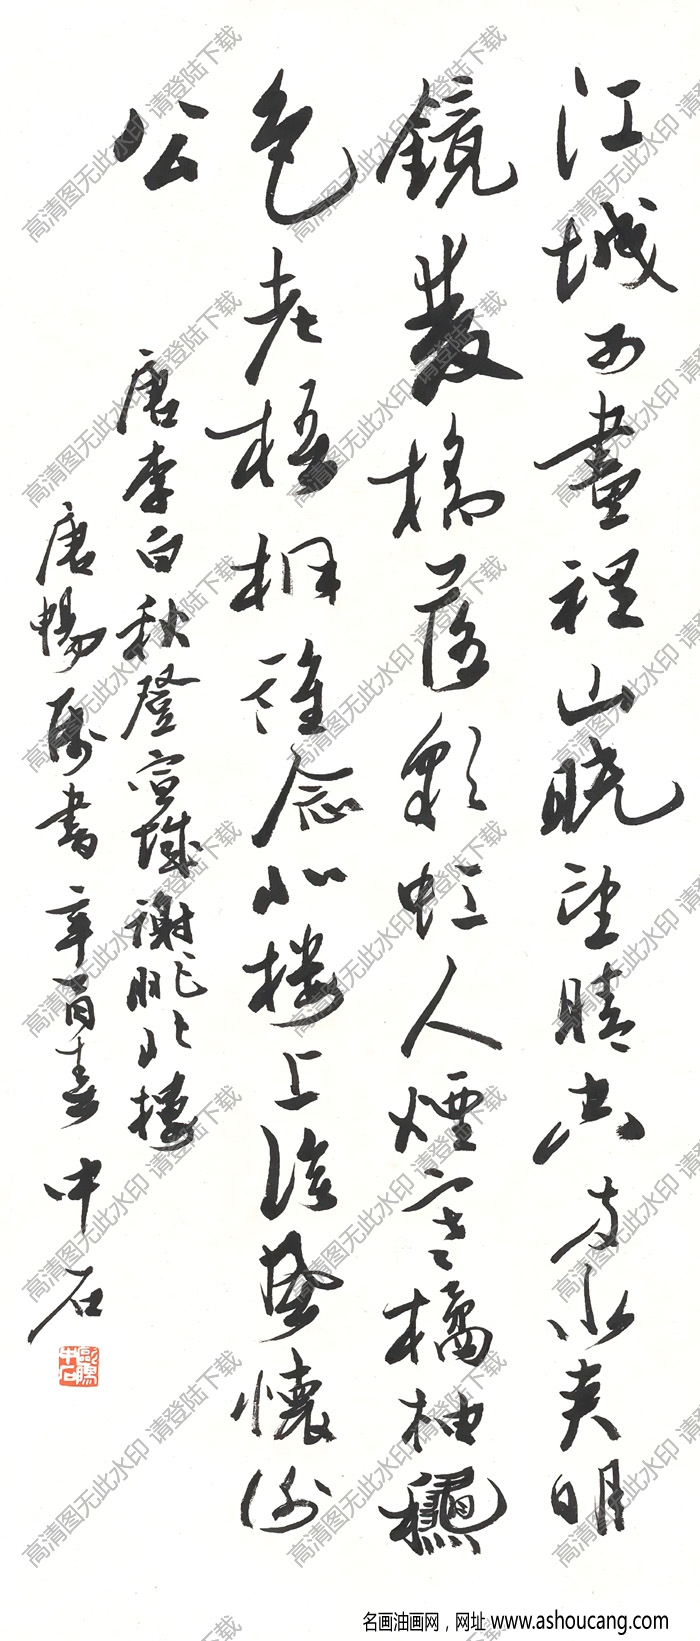 江城如畫裡山曉望晴空兩水夾明
鏡雙橋落彩虹人煙寒橘柚龝
色老梧桐誰念北樓上臨風懷謝
公
唐李白秋登宣城謝朓北樓
唐暢屬書辛酉春中石
歐陽中石
高清图无此水印 请登陆下载
名画油画网，网址 www.ashoucang.com